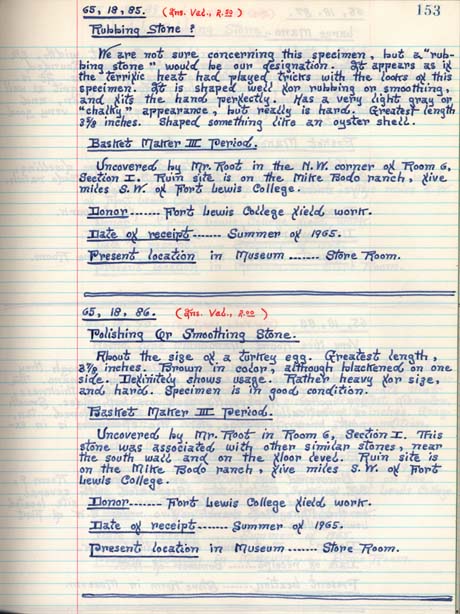 153
65, 18, 85. (Ins. Val., 2.50)
Rubbing Stone?
We are not sure concerning this specimen, but a "rub-
bing stone" would be our designation. It appears as if
the terrific heat had played tricks with the looks of this
specimen. It is shaped well for rubbing or smoothing,
and fits the hand perfectly. Has a very light gray or
"chalky" appearance, but really is hard. Greatest length
inches. Shaped something like an oyster shell.
Basket Maker III Period.
Uncovered by Mr. Root in the N.W. corner of Room 6,
Section I. Ruin site is on the Mike Bodo ranch, five
miles S.W. of Fort Lewis College.
Donor ....... Fort Lewis College field work.
Date of receipt ...... Summer of 1965.
Present location in Museum ....... Store Room.
65, 18, 86. (Ins. Val., 2.00)
Polishing Or Smoothing Stone.
About the size of a turkey egg. Greatest length,
inches. Brown in color, although blackened on one
side. Definitely shows usage. Rather heavy for size,
and hard. Specimen is in good condition.
Basket Maker III Period.
Uncovered by Mr. Root in Room 6, Section I. This
stone was associated with other similar stones, near
the south wall and on the floor level. Ruin site is
on the Mike Bodo ranch, five miles S.W. of Fort
Lewis College.
Donor ....... Fort Lewis College field work.
Date of receipt ....... Summer of 1965.
Present location in Museum ....... Store Room.